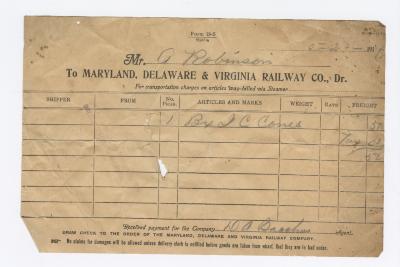 Form 19-S
Mr. A Robinson
To MARYLAND, DELAWARE & VIRGINIA RAILWAY CO., Dr.
For transportation charges on articles way-billed via Steamer
SHIPPER FROM No. Pieces. ARTICLES AND MARKS WEIGHT RATE FREIGHT
1 Bx I C Cones
Received payment for the Company Agent.
DRAW CHECK TO THE ORDER OF THE MARYLAND, DELAWARE AND VIRGINIA RAILWAY COMPANY.
No claims for damages will be allowed unless delivery clerk is notified before goods are taken from wharf, that they are in bad order.